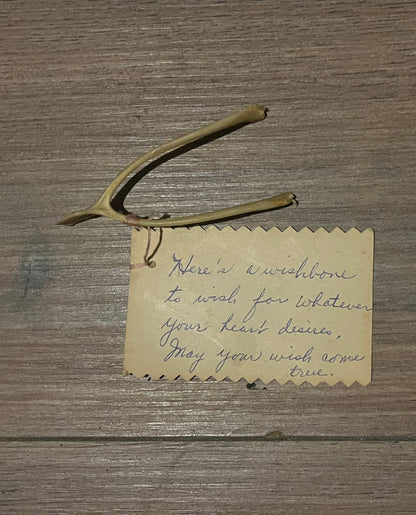 Here's a wishbone
to wish for whatever
your heart desires.
May your wish come
true.